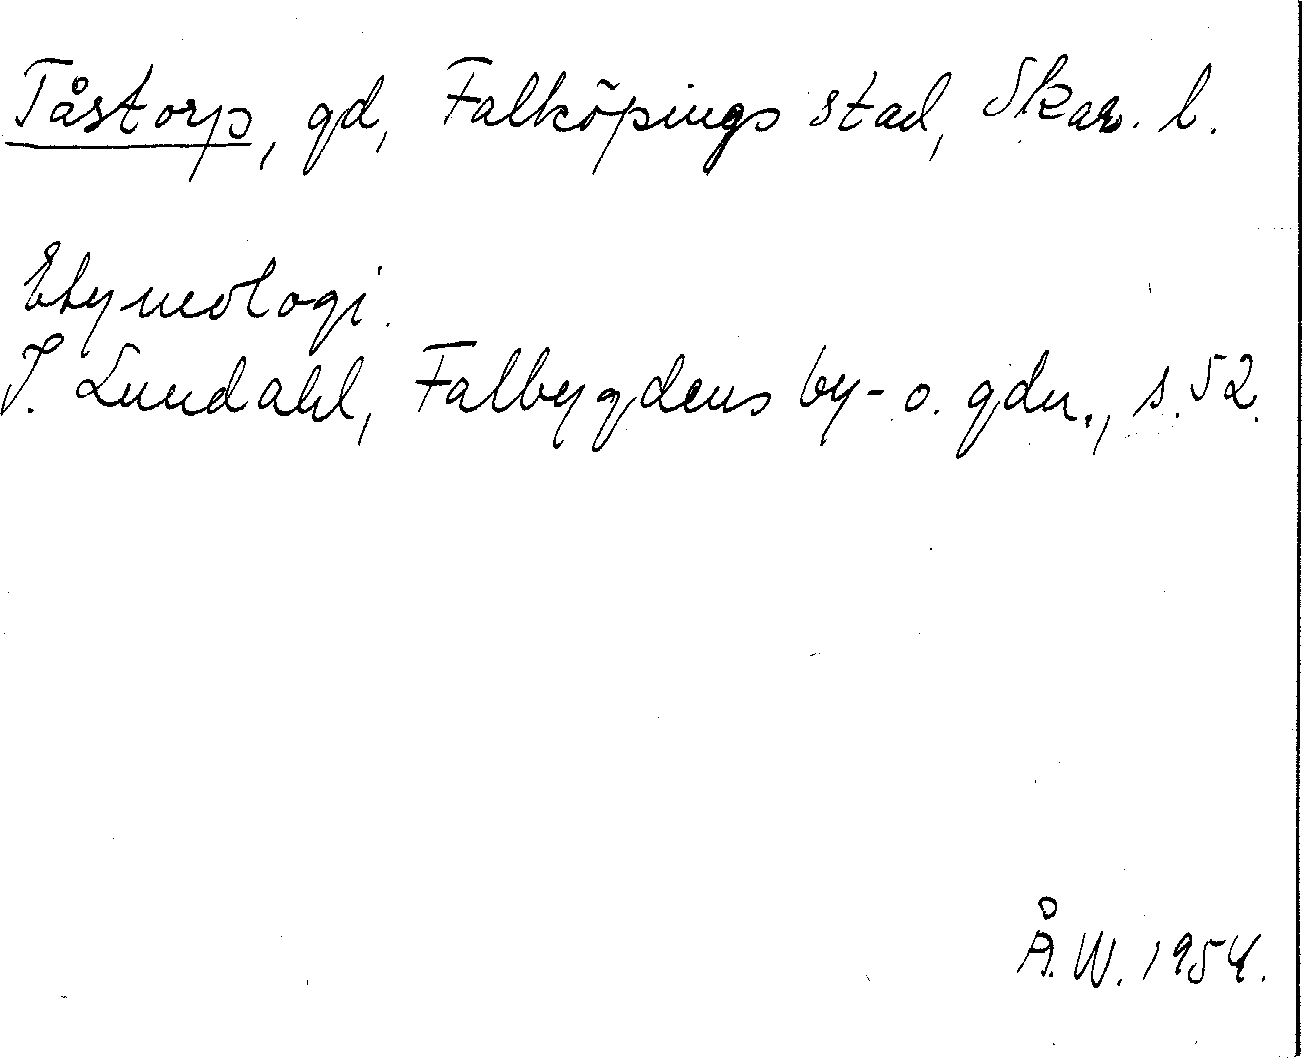 Tåstorp, gd, Falköpings stad, Skar. l.
Etymologi.
I. Lundahl, Falbygdens by- o. gdn., s. 52.
Å. W. 1954.